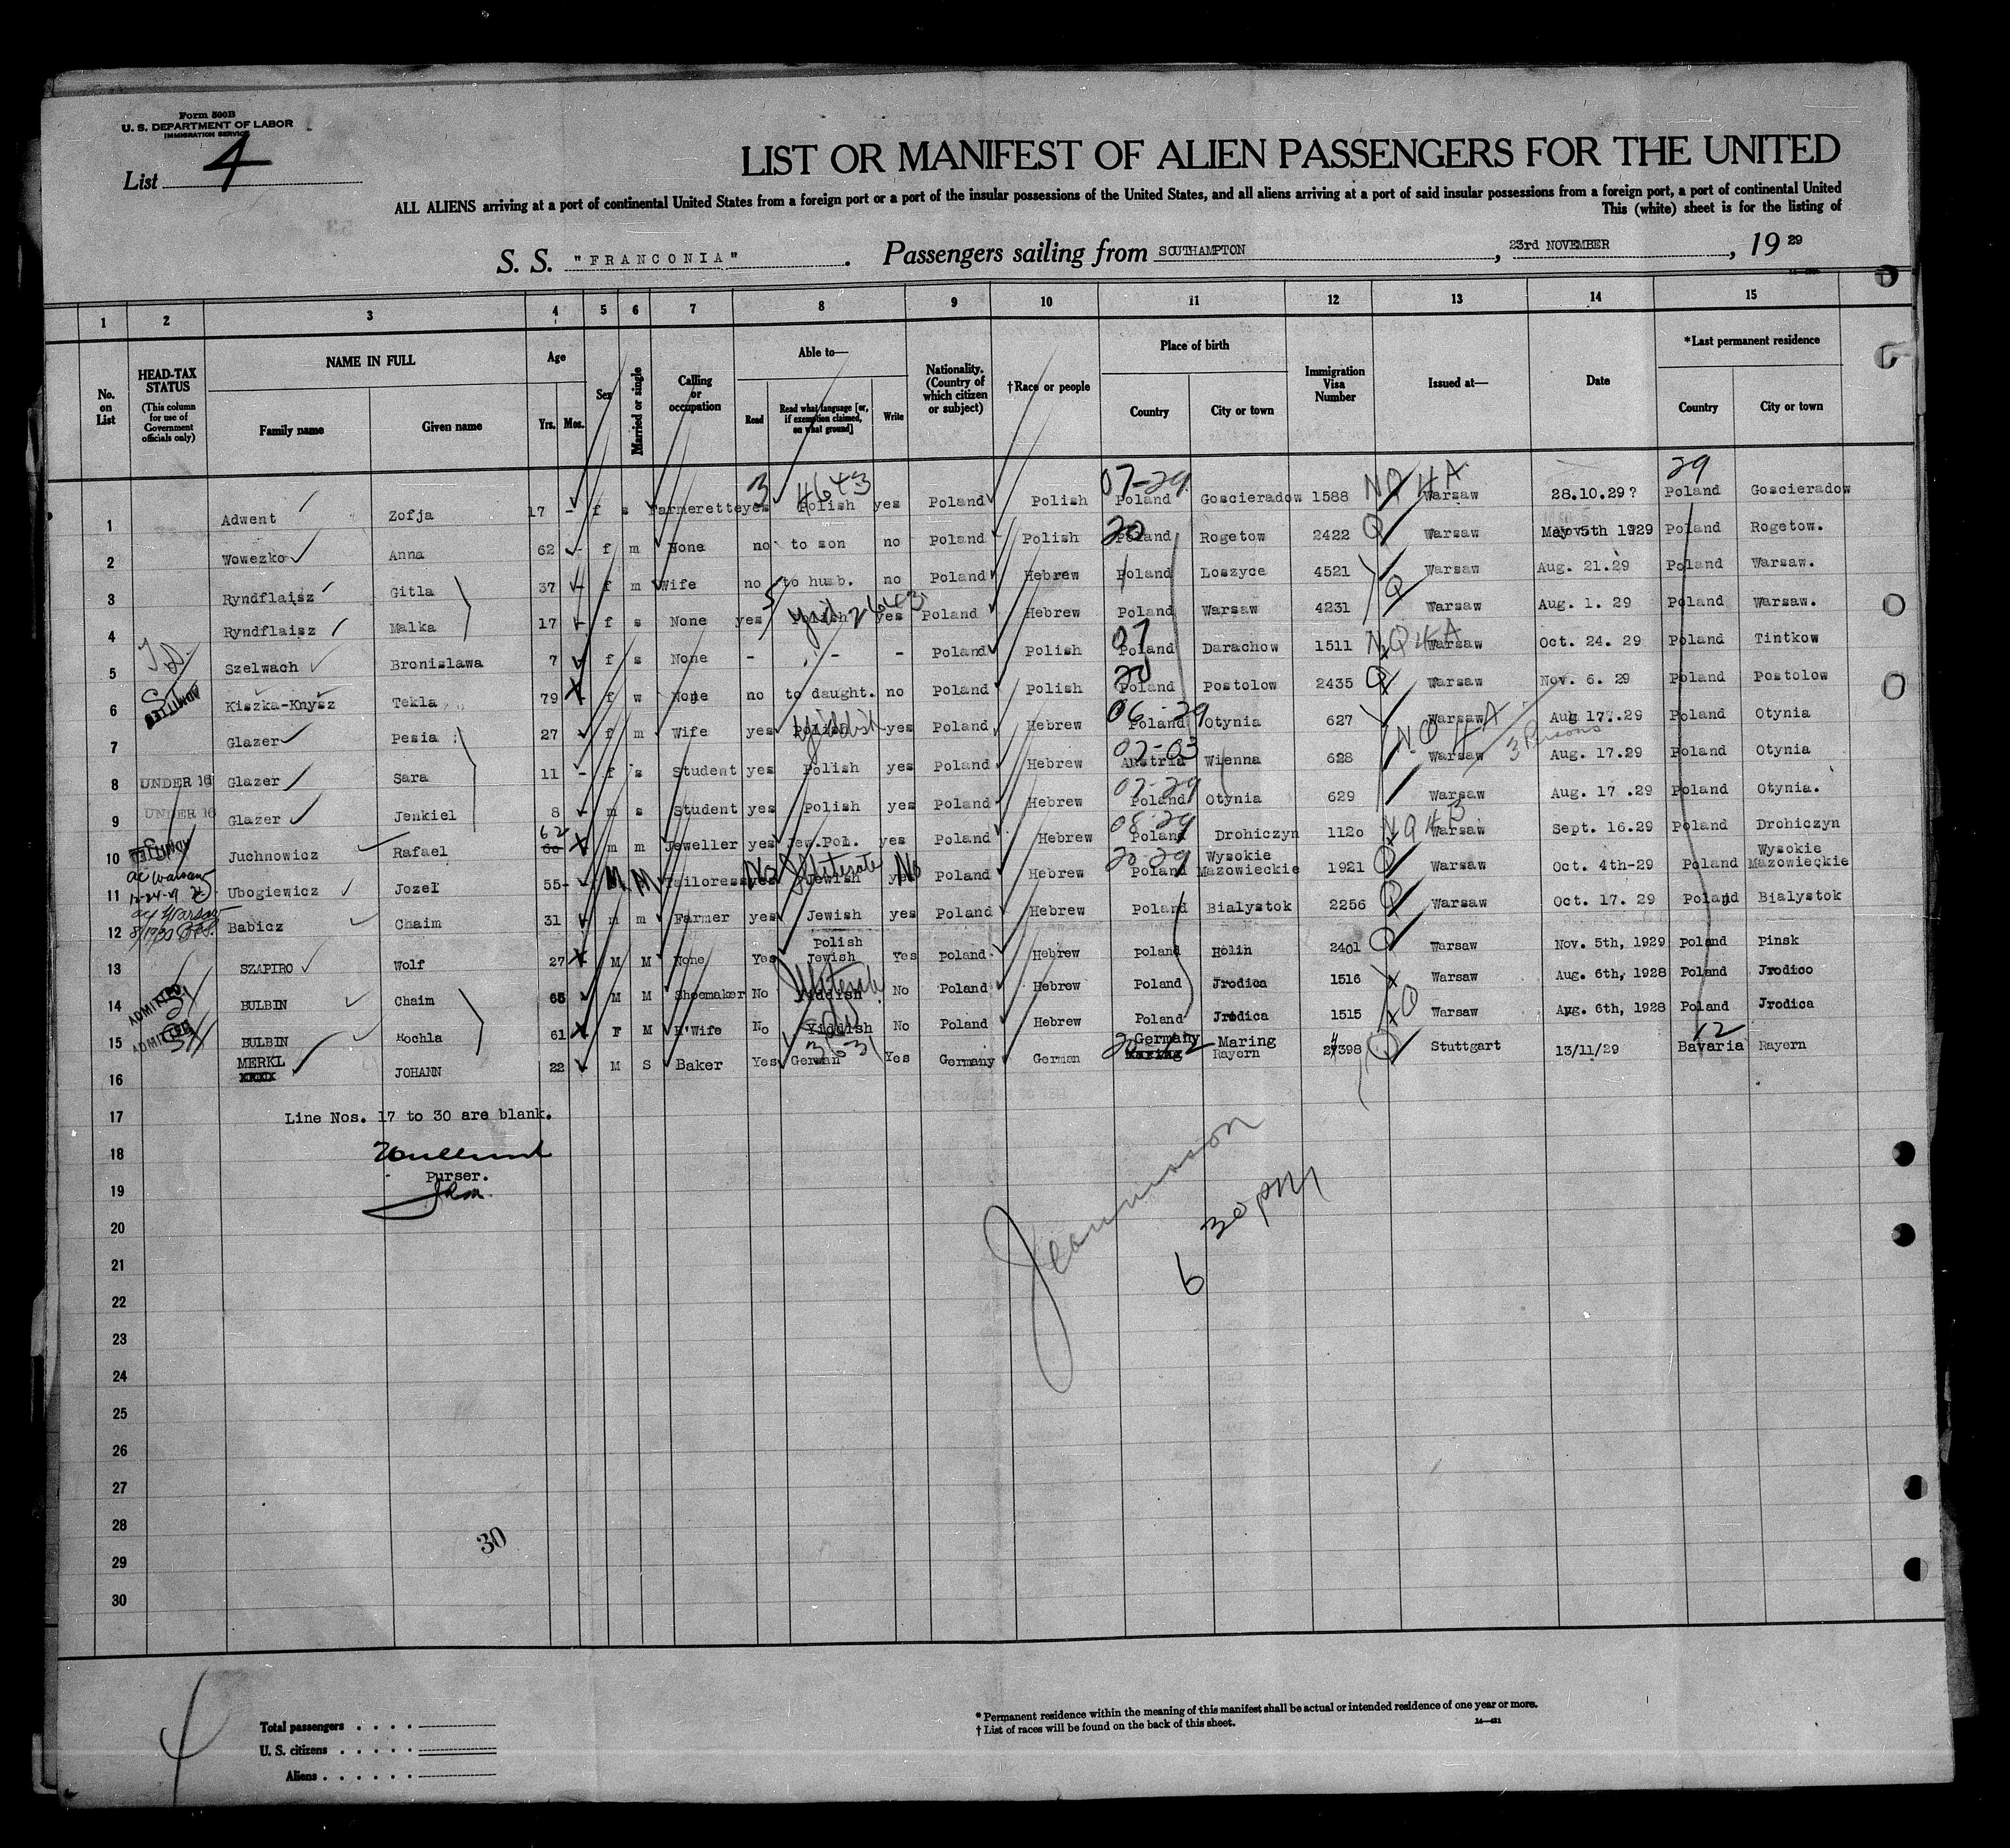 Form 500B
U. S. DEPARTMENT OF LABOR
IMMIGRATION SERVICE
List 4
LIST OR MANIFEST OF ALIEN PASSENGERS FOR THE UNITED
ALL ALIENS arriving at a port of continental United States from a foreign port or a port of the insular possessions of the United States, and all aliens arriving at a port of said insular possessions from a foreign port, a port of continental United
This (white) sheet is for the listing of
S. S. "FRANCONIA". Passengers sailing from SOUTHAMPTON, 23rd NOVEMBER, 19 29
1 2 3 4 5 6 7 8 9 10 11 12 13 14 15
No. on List
HEAD-TAX STATUS (This column for use of Government officials only)
NAME IN FULL Family name Given name
Age Yrs. Mos.
Sex
Married or single
Calling or occupation
Able to— Read Read what language [or, if exemption claimed, on what ground] Write
Nationality. (Country of which citizen or subject)
†Race or people
Place of birth Country City or town
Immigration Visa Number
Issued at—
Date
*Last permanent residence Country City or town
3 4643 07-29 NQ 4 A 29
1 Adwent Zofja 17 - f s Farmerette yes Polish yes Poland Polish Poland Goscieradow 1588 Warsaw 28.10.29? Poland Goscieradow
2 Wowezko Anna 62 - f m None no to son no Poland Polish 20 Poland Rogetow 2422 Q Warsaw Nov 5th 1929 Poland Rogetow.
3 Ryndflaisz Gitla 37 - f m Wife no to husb. no Poland Hebrew Poland Loszyce 4521 Warsaw Aug. 21.29 Poland Warsaw.
4 Ryndflaisz Malka 17 - f s None yes Polish Yid 2643 yes Poland Hebrew Poland Warsaw 4231 Q Warsaw Aug. 1. 29 Poland Warsaw.
5 Szelwach Bronislawa 7 f s None - - - Poland Polish 07 Poland Darachow 1511 NQ4A Warsaw Oct. 24. 29 Poland Tintkow
6 ADMITTED Kiszka-Knysz Tekla 79 - f w None no to daught. no Poland Polish 20 Poland Postolow 2435 Q Warsaw Nov. 6. 29 Poland Postolow
7 Glazer Pesia 27 f m Wife yes Polish Yiddish yes Poland Hebrew 06-29 Poland Otynia 627 Warsaw Aug 17.29 Poland Otynia
NQ 4 A 3 Persons
8 UNDER 16 Glazer Sara 11 - f s Student yes Polish yes Poland Hebrew 07-03 Austria Wienna 628 Warsaw Aug. 17.29 Poland Otynia
9 UNDER 16 Glazer Jenkiel 8 m s Student yes Polish yes Poland Hebrew 07-29 Poland Otynia 629 Warsaw Aug. 17 .29 Poland Otynia.
10 ADMITTED Juchnowicz Rafael 62 60 m m Jeweller yes Jew.Pol. yes Poland Hebrew 08-29 Poland Drohiczyn 1120 NQ4B Warsaw Sept. 16.29 Poland Drohiczyn
11 Ubogiewicz Jozef 55- M M Tailoress No Jewish Illiterate No Poland Hebrew 20-29 Poland Wysokie Mazowieckie 1921 Q Warsaw Oct. 4th-29 Poland Wysokie Mazowieckie
12 Babicz Chaim 31 m m Farmer yes Jewish yes Poland Hebrew Poland Bialystok 2256 Q Warsaw Oct. 17. 29 Poland Bialystok
13 SZAPIRO Wolf 27 M M None Yes Polish Jewish Yes Poland Hebrew Poland Holin 2401 Q Warsaw Nov. 5th, 1929 Poland Pinsk
14 ADMITTED BULBIN Chaim 65 M M Shoemaker No Yiddish Illiterate No Poland Hebrew Poland Jrodica 1516 Warsaw Aug. 6th, 1928 Poland Jrodico
15 ADMITTED BULBIN Rochla 61 F M H'Wife No Yiddish No Poland Hebrew Poland Jrodica 1515 Q Warsaw Aug. 6th, 1928 Poland Jrodica
16 MERKL JOHANN 22 M S Baker Yes German 3631 Yes Germany German Germany 20-12 Maring Rayern 27398 Q Stuttgart 13/11/29 12 Bavaria Rayern
17 Line Nos. 17 to 30 are blank.
18
Purser.
19
20
21
22
23
24
25
26
27
28
29
30
6 30 PM
30
4
Total passengers
U. S. citizens
Aliens
* Permanent residence within the meaning of this manifest shall be actual or intended residence of one year or more.
† List of races will be found on the back of this sheet.